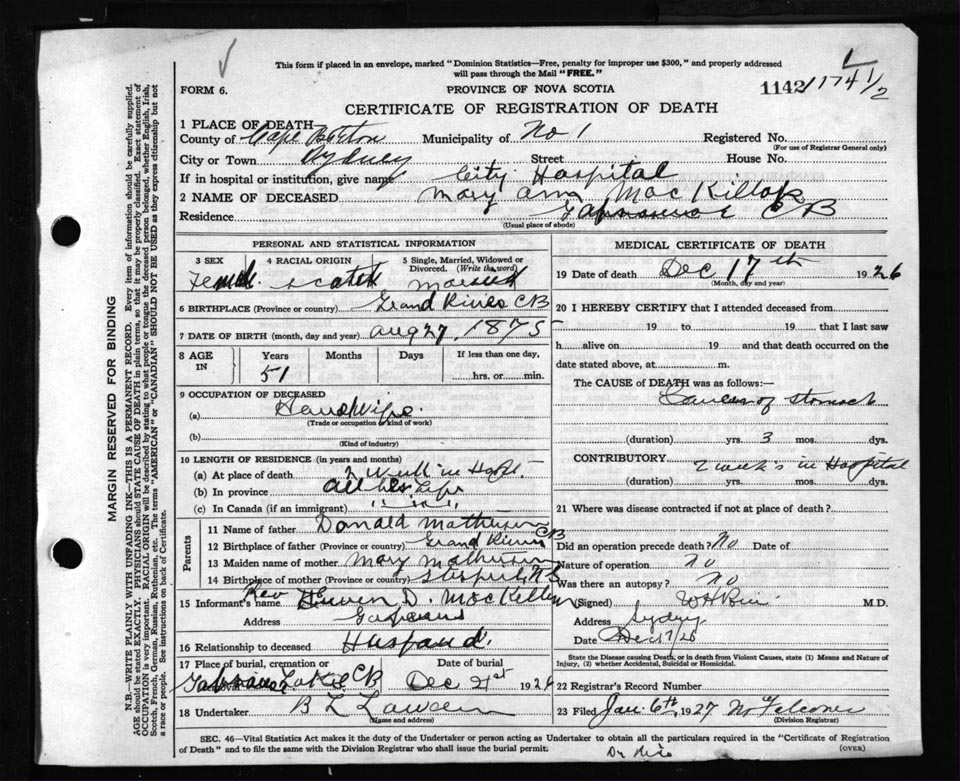 This form if placed in an envelope, marked "Dominion Statistics—Free, penalty for improper use $300," and properly addressed
will pass through the Mail "FREE."
FORM 6.
PROVINCE OF NOVA SCOTIA
1142 1741/2
CERTIFICATE OF REGISTRATION OF DEATH
1 PLACE OF DEATH—
County of Cape Breton Municipality of No 1 Registered No.
(For use of Registrar General only)
City or Town Sydney Street House No.
If in hospital or institution, give name City Hospital
2 NAME OF DECEASED Mary Ann MacKillop
Residence C B
(Usual place of abode)
PERSONAL AND STATISTICAL INFORMATION
3 SEX 4 RACIAL ORIGIN 5 Single, Married, Widowed or
Divorced. (Write the word)
Female Scotch Married
6 BIRTHPLACE (Province or country) Grand River CB
7 DATE OF BIRTH (month, day and year) Aug 27, 1875
8 AGE IN Years Months Days If less than one day,
51 hrs. or min.
9 OCCUPATION OF DECEASED
(a) Housewife
(Trade or occupation or kind of work)
(b)
(Kind of industry)
10 LENGTH OF RESIDENCE (in years and months)
(a) At place of death 2 week in Hospt.
(b) In province all her life
(c) In Canada (if an immigrant)
Parents
11 Name of father Donald Matheson
12 Birthplace of father (Province or country) Grand River CB
13 Maiden name of mother Mary Matheson
14 Birthplace of mother (Province or country)
15 Informant's name Rev D. MacKillop
Address Gabarus
16 Relationship to deceased Husband.
17 Place of burial, cremation or Date of burial
Gabarus Lake CB Dec 21st 1926
18 Undertaker B L
(Name and address)
MEDICAL CERTIFICATE OF DEATH
19 Date of death Dec 17th 1926
(Month, day and year)
20 I HEREBY CERTIFY that I attended deceased from
19 to 19 that I last saw
h alive on 19 and that death occurred on the
date stated above, at m.
The CAUSE of DEATH was as follows:—
Cancer of stomach
(duration) yrs. 3 mos. dys.
CONTRIBUTORY 2 weeks in Hospital
(duration) yrs. mos. dys.
21 Where was disease contracted if not at place of death?
Did an operation precede death? No Date of
Nature of operation no
Was there an autopsy? No
(Signed) M.D.
Address Sydney
Date Dec 17/26
State the Disease causing Death, or in death from Violent Causes, state (1) Means and Nature of
Injury, (2) whether Accidental, Suicidal or Homicidal.
22 Registrar's Record Number
23 Filed Jan. 6th, 1927
(Division Registrar)
SEC. 46—Vital Statistics Act makes it the duty of the Undertaker or person acting as Undertaker to obtain all the particulars required in the "Certificate of Registration
of Death" and to file the same with the Division Registrar who shall issue the burial permit.
(OVER)
MARGIN RESERVED FOR BINDING
N.B.—WRITE PLAINLY WITH UNFADING INK—THIS IS A PERMANENT RECORD. Every item of information should be carefully supplied.
AGE should be stated EXACTLY. PHYSICIANS should STATE CAUSE OF DEATH in plain terms, so that it may be properly classified. Exact statement of
OCCUPATION is very important. RACIAL ORIGIN will be described by stating to what people or tongue the deceased person belonged, whether English, Irish,
Scotch, French, German, Russian, Ruthenian, etc. The terms "AMERICAN" or "CANADIAN" SHOULD NOT BE USED as they express citizenship but not
a race or people. See instructions on back of Certificate.